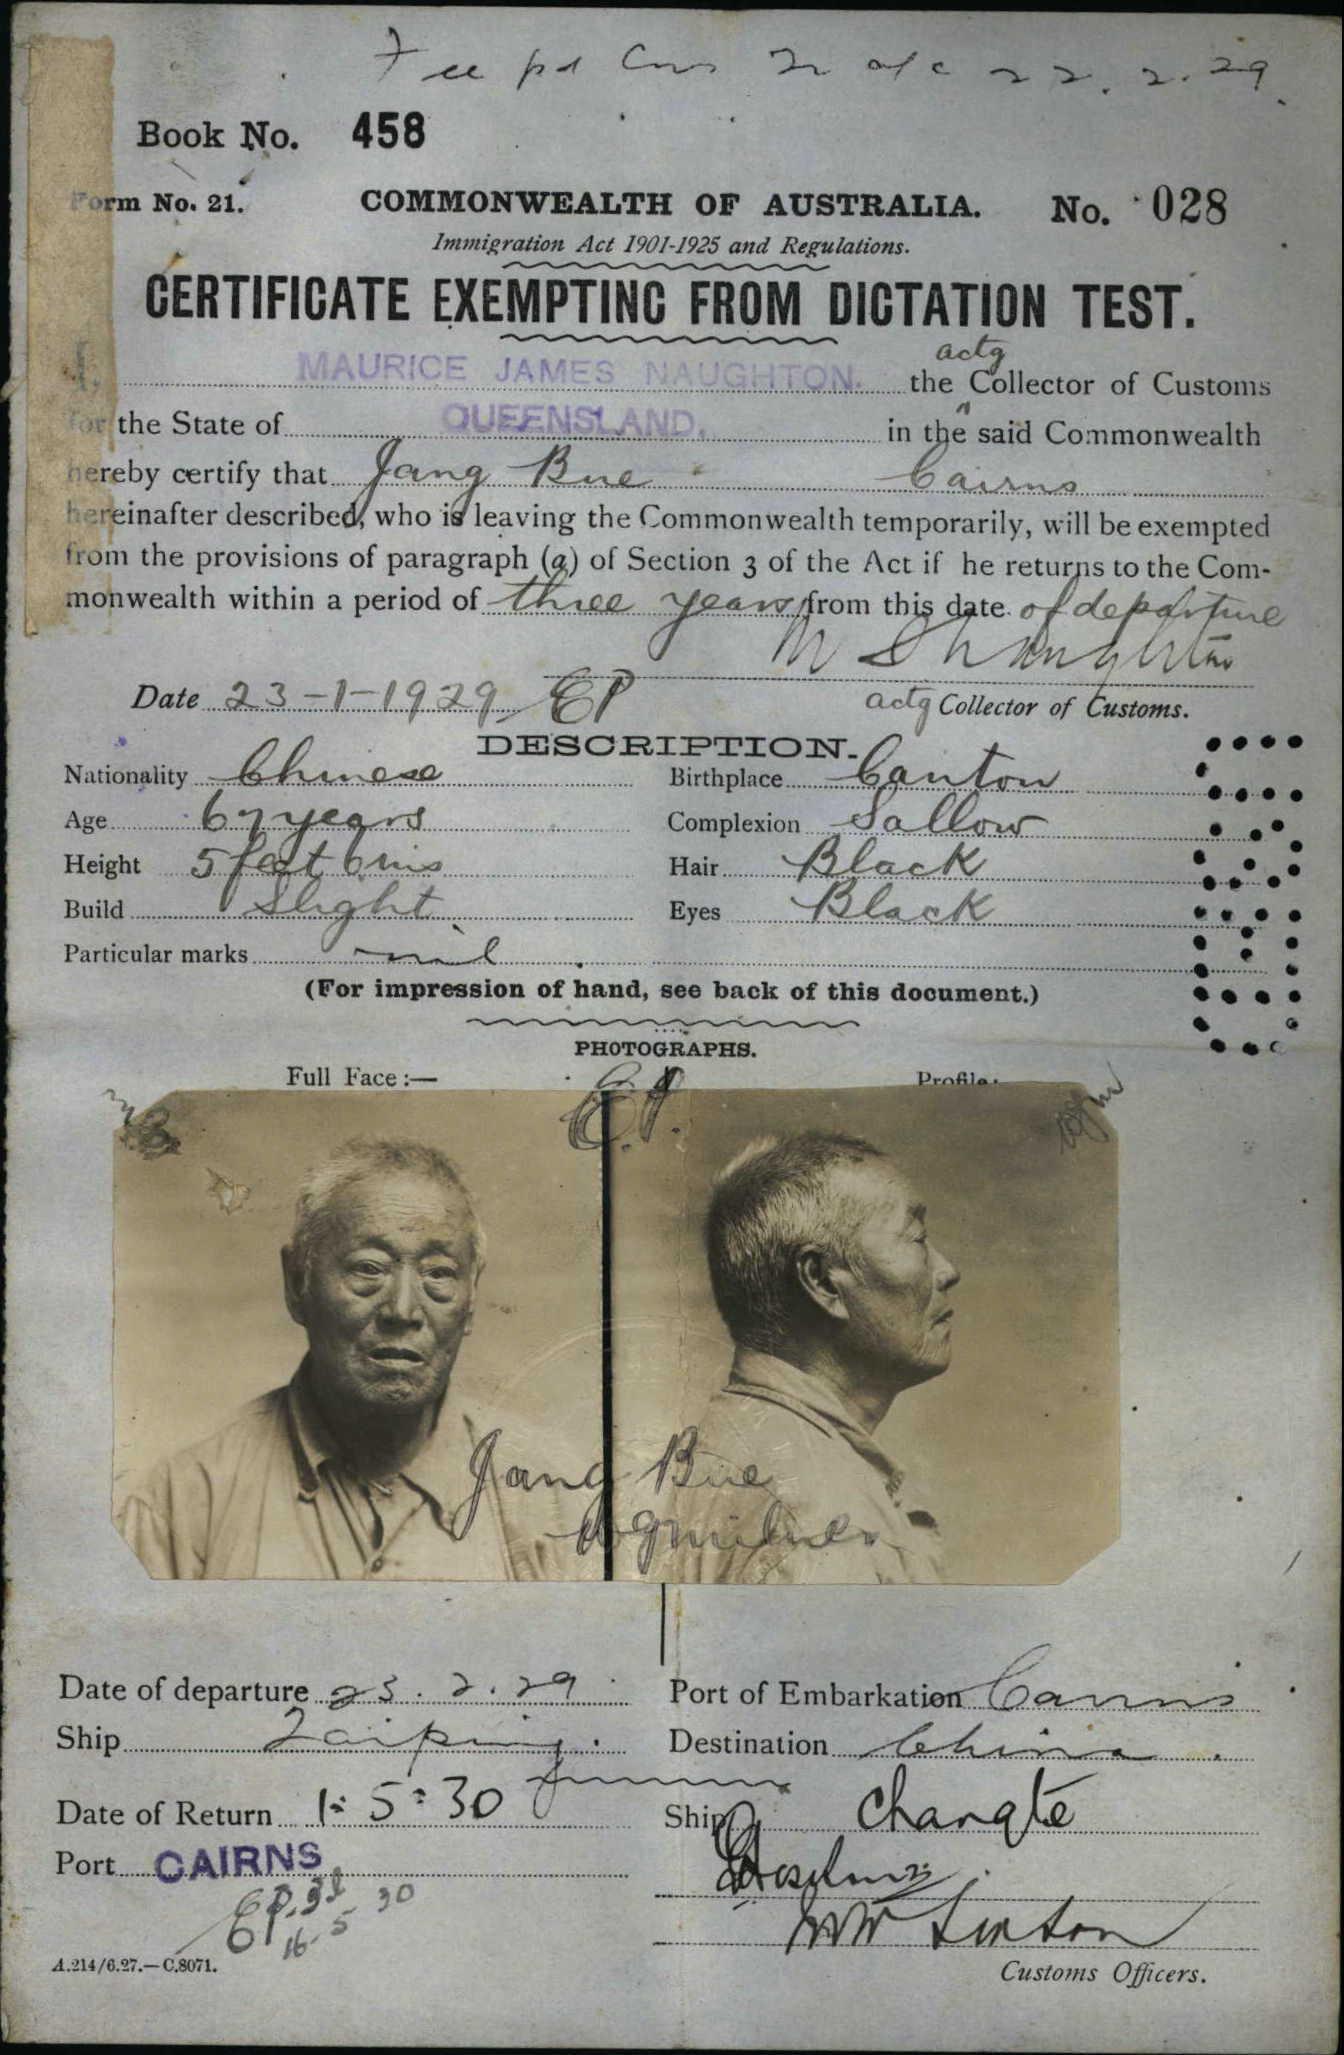 Fee pd Cns 22.2.29.
Book No. 458
Form No. 21. COMMONWEALTH OF AUSTRALIA. No. 028
Immigration Act 1901-1925 and Regulations.
CERTIFICATE EXEMPTING FROM DICTATION TEST.
I, MAURICE JAMES NAUGHTON. the actg Collector of Customs
for the State of QUEENSLAND, in the said Commonwealth
hereby certify that Jang Bue Cairns
hereinafter described, who is leaving the Commonwealth temporarily, will be exempted
from the provisions of paragraph (a) of Section 3 of the Act if he returns to the Com-
monwealth within a period of three years from this date of departure
Date 23-1-1929 EP actg Collector of Customs.
DESCRIPTION.
Nationality Chinese Birthplace Canton
Age 67 years Complexion Sallow
Height 5 feet 6 ins Hair Black
Build Slight Eyes Black
Particular marks nil
(For impression of hand, see back of this document.)
PHOTOGRAPHS.
Full Face:— Profile:
E.P.
Jang Bue
WGMilner
Date of departure 23.2.29 Port of Embarkation Cairns
Ship Taiping. Destination China.
Date of Return 1:5:30 Ship Changte
Port CAIRNS
EP
16-5 30
A.214/6.27.—C.8071. Customs Officers.